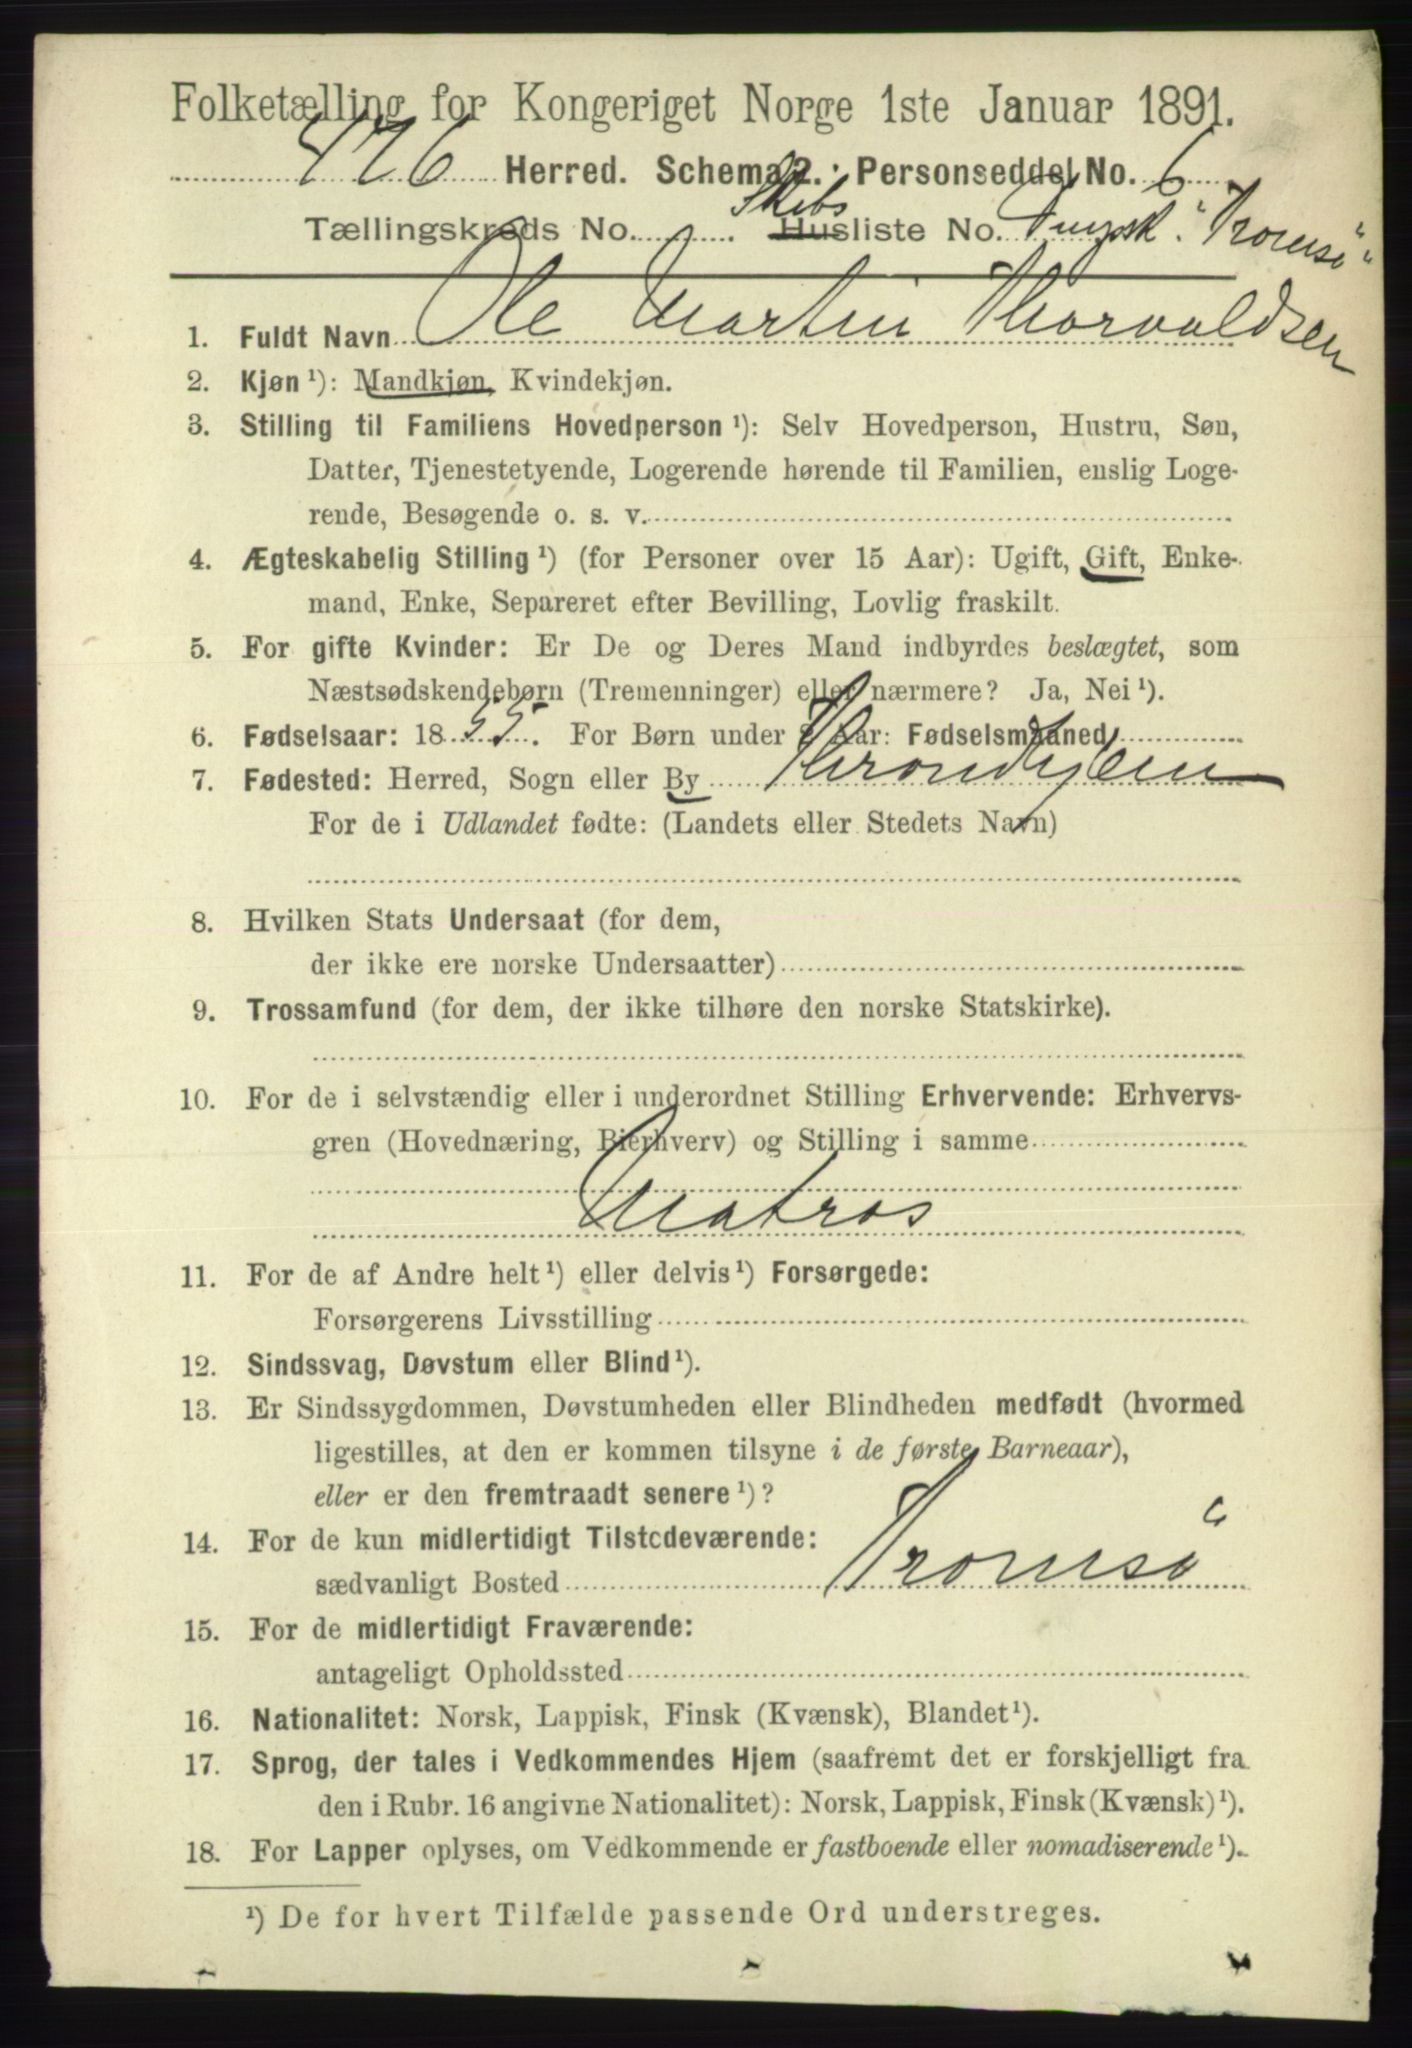 Folketælling for Kongeriget Norge 1ste Januar 1891.
Herred. Schema 2. Personseddel No. 6
Tællingskreds No. Skibs Husliste No. "Tromsø"
1. Fuldt Navn Ole Martin Thorvaldsen
2. Kjøn ¹): Mandkjøn, Kvindekjøn.
3. Stilling til Familiens Hovedperson ¹): Selv Hovedperson, Hustru, Søn,
Datter, Tjenestetyende, Logerende hørende til Familien, enslig Loge-
rende, Besøgende o. s. v.
4. Ægteskabelig Stilling ¹) (for Personer over 15 Aar): Ugift, Gift, Enke-
mand, Enke, Separeret efter Bevilling, Lovlig fraskilt.
5. For gifte Kvinder: Er De og Deres Mand indbyrdes beslægtet, som
Næstsødskendebørn (Tremenninger) eller nærmere? Ja, Nei ¹).
6. Fødselsaar: 1855. For Børn under 2 Aar: Fødselsmaaned
7. Fødested: Herred, Sogn eller By Throndhjem
For de i Udlandet fødte: (Landets eller Stedets Navn)
8. Hvilken Stats Undersaat (for dem,
der ikke ere norske Undersaatter)
9. Trossamfund (for dem, der ikke tilhøre den norske Statskirke).
10. For de i selvstændig eller i underordnet Stilling Erhvervende: Erhvervs-
gren (Hovednæring, Bierhverv) og Stilling i samme
Matros
11. For de af Andre helt ¹) eller delvis ¹) Forsørgede:
Forsørgerens Livsstilling
12. Sindssvag, Døvstum eller Blind ¹).
13. Er Sindssygdommen, Døvstumheden eller Blindheden medfødt (hvormed
ligestilles, at den er kommen tilsyne i de første Barneaar),
eller er den fremtraadt senere ¹)?
14. For de kun midlertidigt Tilstedeværende:
sædvanligt Bosted Tromsø
15. For de midlertidigt Fraværende:
antageligt Opholdssted
16. Nationalitet: Norsk, Lappisk, Finsk (Kvænsk), Blandet ¹).
17. Sprog, der tales i Vedkommendes Hjem (saafremt det er forskjelligt fra
den i Rubr. 16 angivne Nationalitet): Norsk, Lappisk, Finsk (Kvænsk) ¹).
18. For Lapper oplyses, om Vedkommende er fastboende eller nomadiserende ¹).
¹) De for hvert Tilfælde passende Ord understreges.